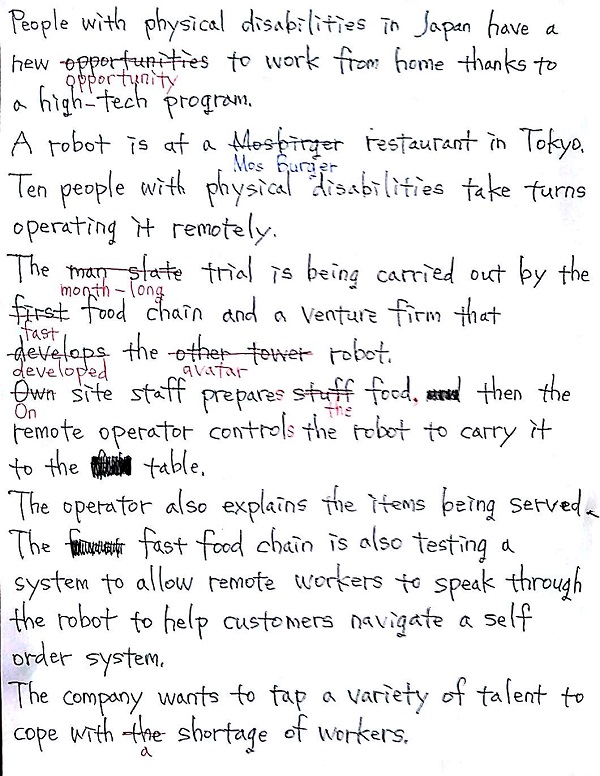 People with physical disabilities in Japan have a
new opportunities to work from home thanks to
opportunity
a high-tech program.
A robot is at a Mosbirger restaurant in Tokyo.
Mos Burger
Ten people with physical disabilities take turns
operating it remotely.
The man slate trial is being carried out by the
month-long
first food chain and a venture firm that
fast
develops the other tower robot.
developed avatar
Own site staff prepares stuff food, and then the
On the
remote operator controls the robot to carry it
to the table.
The operator also explains the items being served.
The fast food chain is also testing a
system to allow remote workers to speak through
the robot to help customers navigate a self
order system.
The company wants to tap a variety of talent to
cope with the shortage of workers.
a